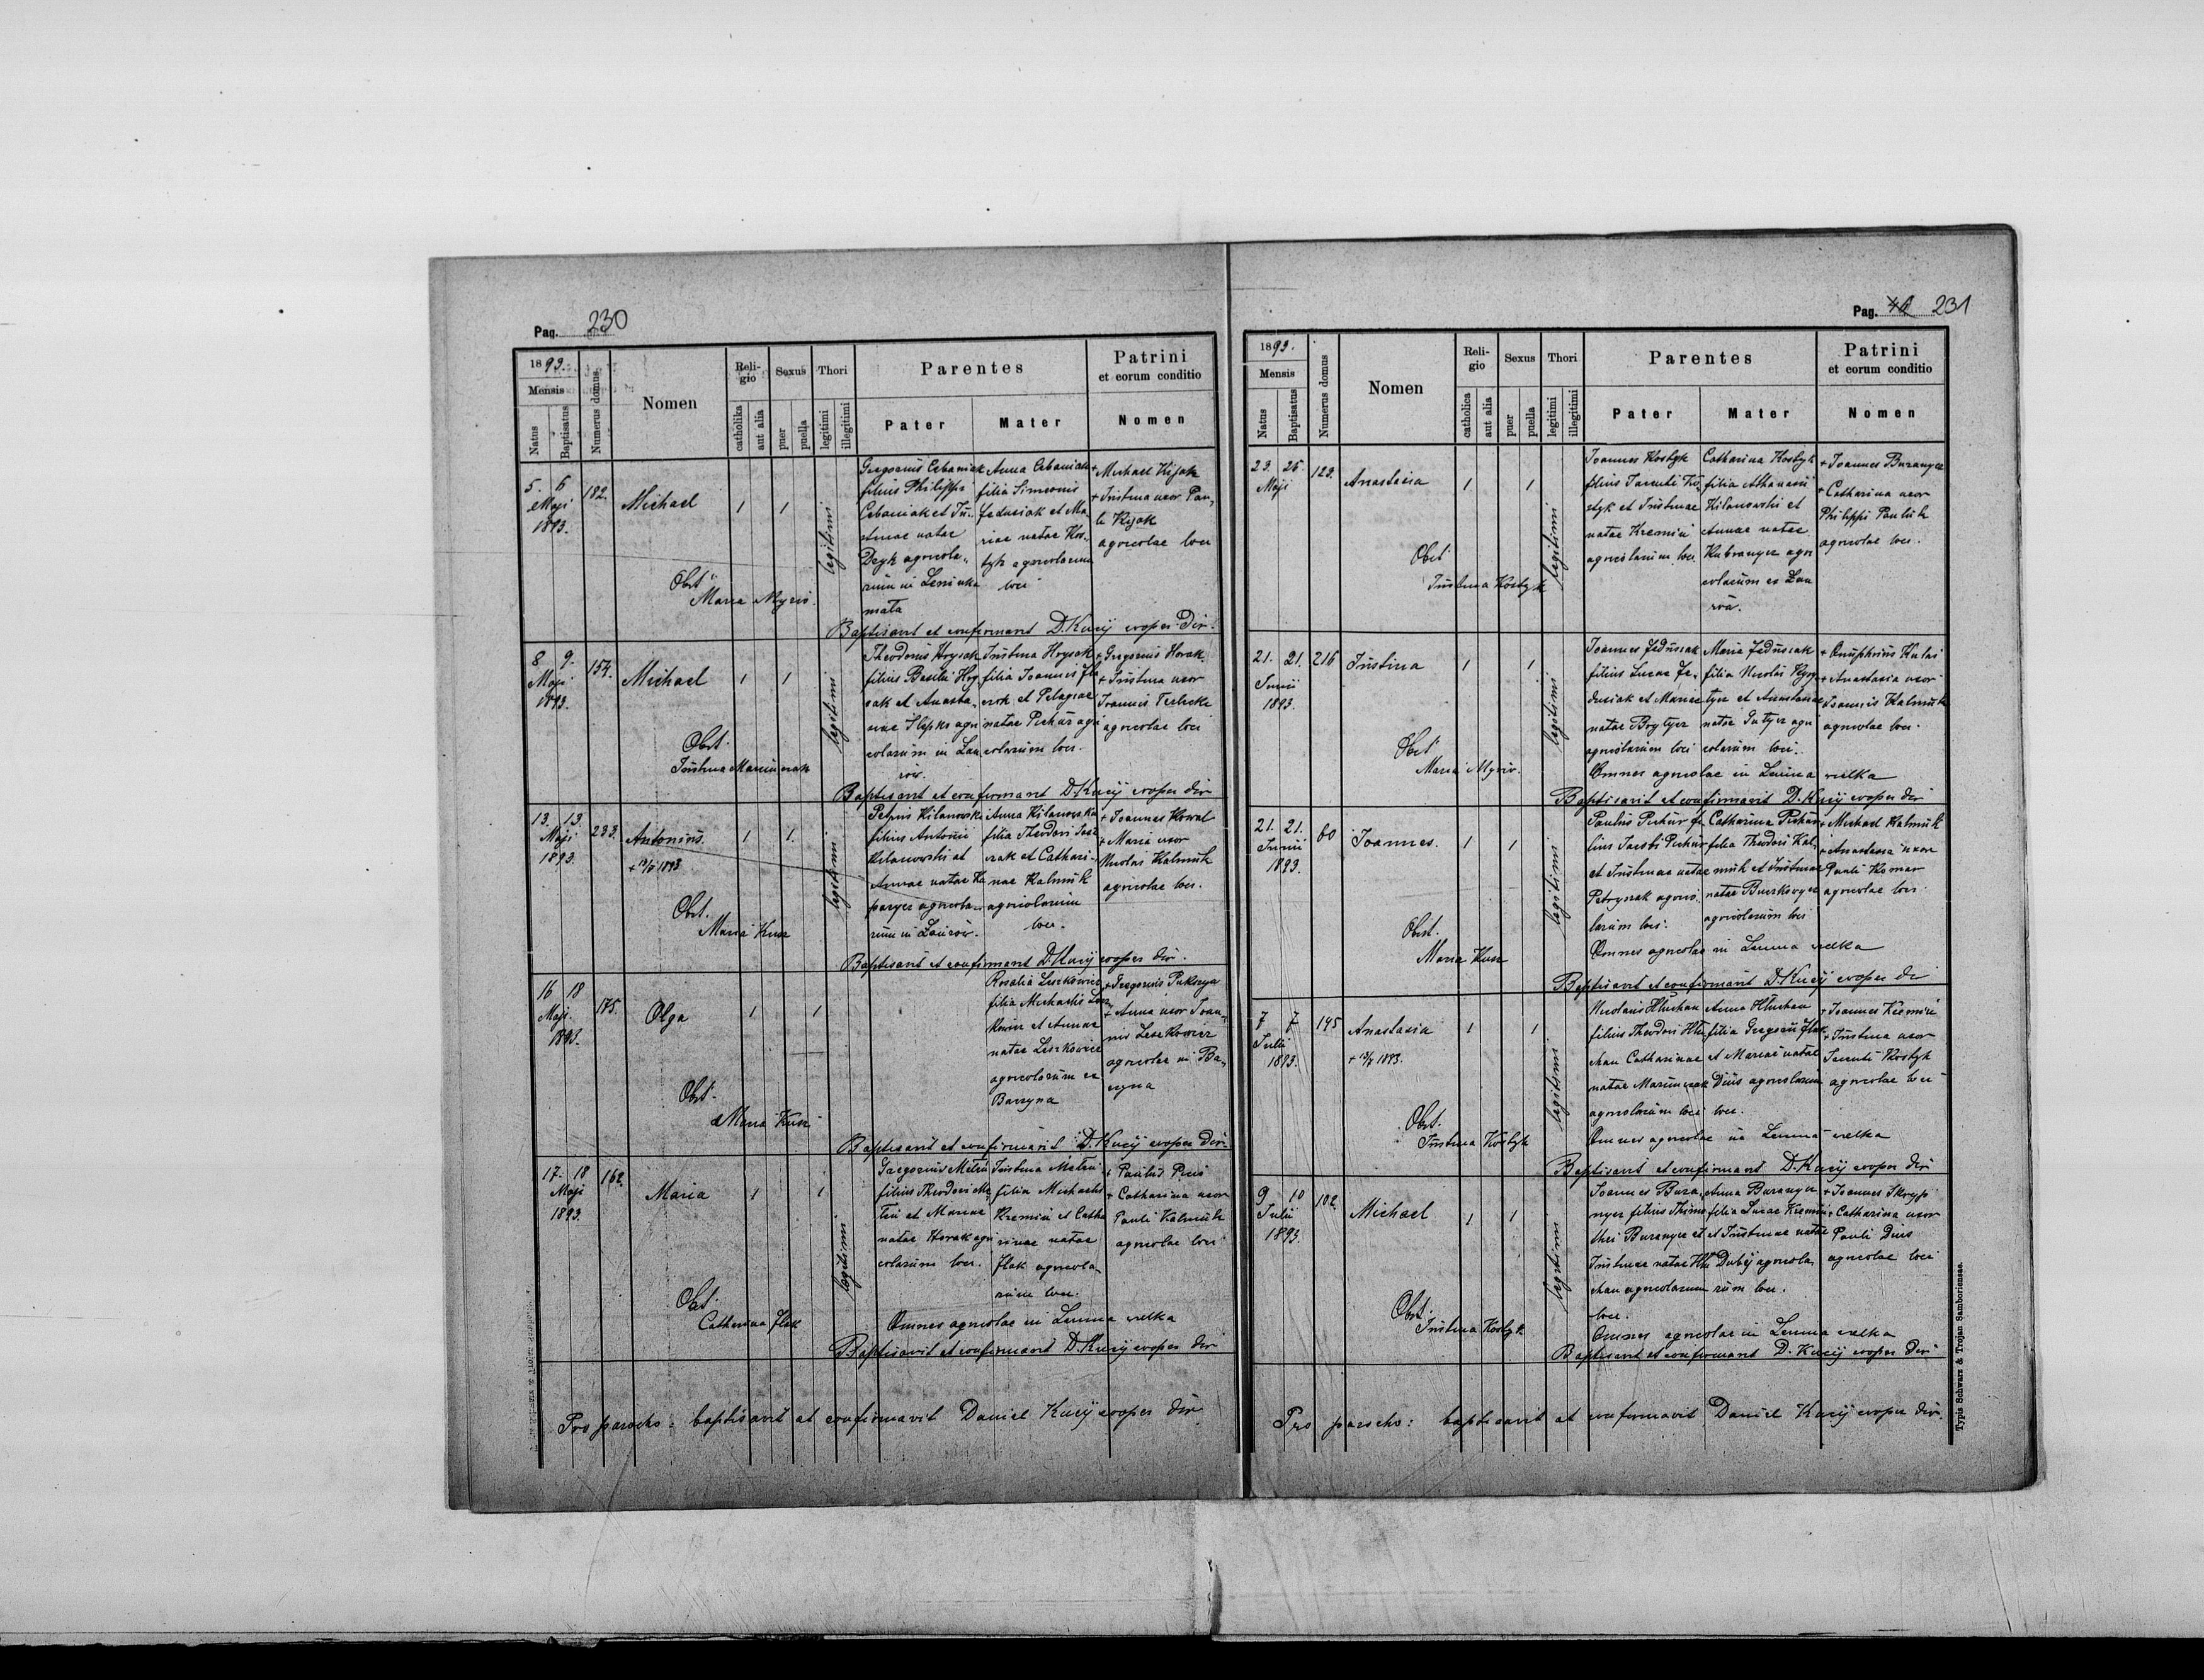 Pag. 230
1893.
Mensis
Natus
Baptisatus
Numerus domus
Nomen
Religio
catholica
aut alia
Sexus
puer
puella
Thori
legitimi
illegitimi
Parentes
Pater
Mater
Patrini
et eorum conditio
Nomen
5. 6
Maji
1893.
182.
Michael
1 1
legitimi
filius Philippi
natae
mata
Anna
filia Simeonis
Fedusiak et Ma
riae natae Kos-
tyk agricolarum
loci
+ Michael Kijak
+ Justina uxor Pau-
li Kijak
agricolae loci
Obst.
Maria Myris.
Baptisavit et confirmavit D. Kucij cooper. dir.
8 9.
Maji
1893.
154.
Michael
1 1
legitimi
Theodorus Hrysak
filius Basilii Hry
sak et Anasta-
siae Slepko agri
colarum in Lau
row.
Justina Hrysak
filia Joannis Fla
czok et Pelagiae
natae Pickur agri
colarum loci.
+ Gregorius Horak
+ Justina uxor
Joannis
agricolae loci
Obst.
Justina Marcinczak
Baptisavit et confirmavit D. Kucij cooper dir
13. 13.
Maji
1893.
233.
Antonius.
1 1.
legitimi
Petrus Kilanowski
filius Antonii
Kilanowski et
Annae natae
agricola-
rum in Laurow.
Anna Kilanowska
filia Theodori
et Cathari-
nae Kalmuk
agricolarum
loci.
+ Joannes Kowal
+ Maria uxor
Nicolai Kalmuk
agricolae loci.
Obst.
Maria Kusz
Baptisavit et confirmavit D. Kucij cooper dir.
16 18
Maji.
1893.
175.
Olga
1 1
Rosalia Leszkowicz
filia Michaelis Lesz
kowicz et Annae
natae Leszkowicz
agricolarum ex
+ Gregorius
+ Anna uxor Joan-
nis Leszkowicz
agricolae in
Obst.
Maria Kusz
Baptisavit et confirmavit D. Kucij cooper dir
17. 18
Maji
1893.
162.
Maria
1 1
legitimi
filius Theodori
et Mariae
natae Horak agri
colarum loci.
Justina
filia Michaelis
Kremin et Catha
rinae natae
Flak agricola-
rum loci.
+ Paulus
+ Catharina uxor
Pauli Kalmuk
agricolae loci
Obst.
Catharina Flak
Omnes agricolae in Lenina wielka
Baptisavit et confirmavit D. Kucij cooper dir
Pro parocho: baptisavit et confirmavit Daniel Kucij cooper dir
Pag. 231
1893.
Mensis
Natus
Baptisatus
Numerus domus
Nomen
Religio
catholica
aut alia
Sexus
puer
puella
Thori
legitimi
illegitimi
Parentes
Pater
Mater
Patrini
et eorum conditio
Nomen
23. 25.
Maji
123.
Anastasia
1 1
legitimi
Joannes Kostyk
filius Jacenti Ko-
styk et Justinae
natae Kremin
agricolarum loci.
Catharina Kostyk
filia Athanasii
Kilanowski et
Annae natae
agri
colarum ex Lau
row.
+ Joannes Buranycz
+ Catharina uxor
Philippi Paulik
agricolae loci.
Obst
Justina Kostyk
21. 21.
Junii
1893.
216
Justina
1 1
legitimi
Joannes Fedusiak
filius Lucae Fe-
dusiak et Mariae
natae
agricolarum loci
Maria Fedusiak
filia Nicolai
et Anastasiae
natae agri
colarum loci.
+ Onuphrius
+ Anastasia uxor
Joannis Kalmuk
agricolae loci.
Obst
Maria Myris.
Omnes agricolae in Lenina wielka
Baptisavit et confirmavit D. Kucij cooper dir
21. 21.
Junii
1893.
60
Joannes.
1 1
legitimi
Paulus Pickur fi
lius Jacobi Pickur
et Justinae natae
Petryszak agrico-
larum loci.
Catharina Pickur
filia Theodori Kal-
muk et Justinae
natae
agricolarum loci
+ Michael Kalmuk
+ Anastasia uxor
Pauli Komar
agricolae loci.
Obst.
Maria Kusz
Omnes agricolae in Lenina wielka
Baptisavit et confirmavit D. Kucij cooper di
7 7
Julii
1893.
145
Anastasia
1 1
legitimi
Nicolaus Hluchan
filius Theodori Hlu
chan Catharinae
natae Marcinczak
agricolarum loci
Anna Hluchan
filia Gregorii Flak
et Mariae natae
Dius agricolarum
loci.
+ Joannes Kremin
+ Justina uxor
Jacenti Kostyk
agricolae loci
Obst.
Justina Kostyk
Omnes agricolae in Lenina wielka
Baptisavit et confirmavit D. Kucij cooper dir
9 10
Julii
1893.
102.
Michael
1 1
legitimi
Joannes Bura-
nycz filius Thimo
thei Buranycz et
Justinae natae Hlu
chan agricolarum
loci.
Anna Buranycz
filia Lucae Kremin
et Justinae natae
Dubij agricola
rum loci.
+ Joannes Skrypj
+ Catharina uxor
Pauli Dius
agricolae loci
Obst.
Justina Kostyk
Omnes agricolae in Lenina wielka
Baptisavit et confirmavit D. Kucij cooper dir
Pro parocho: baptisavit et confirmavit Daniel Kucij cooper dir.
Typis Schwarz & Trojan Samboriensae.